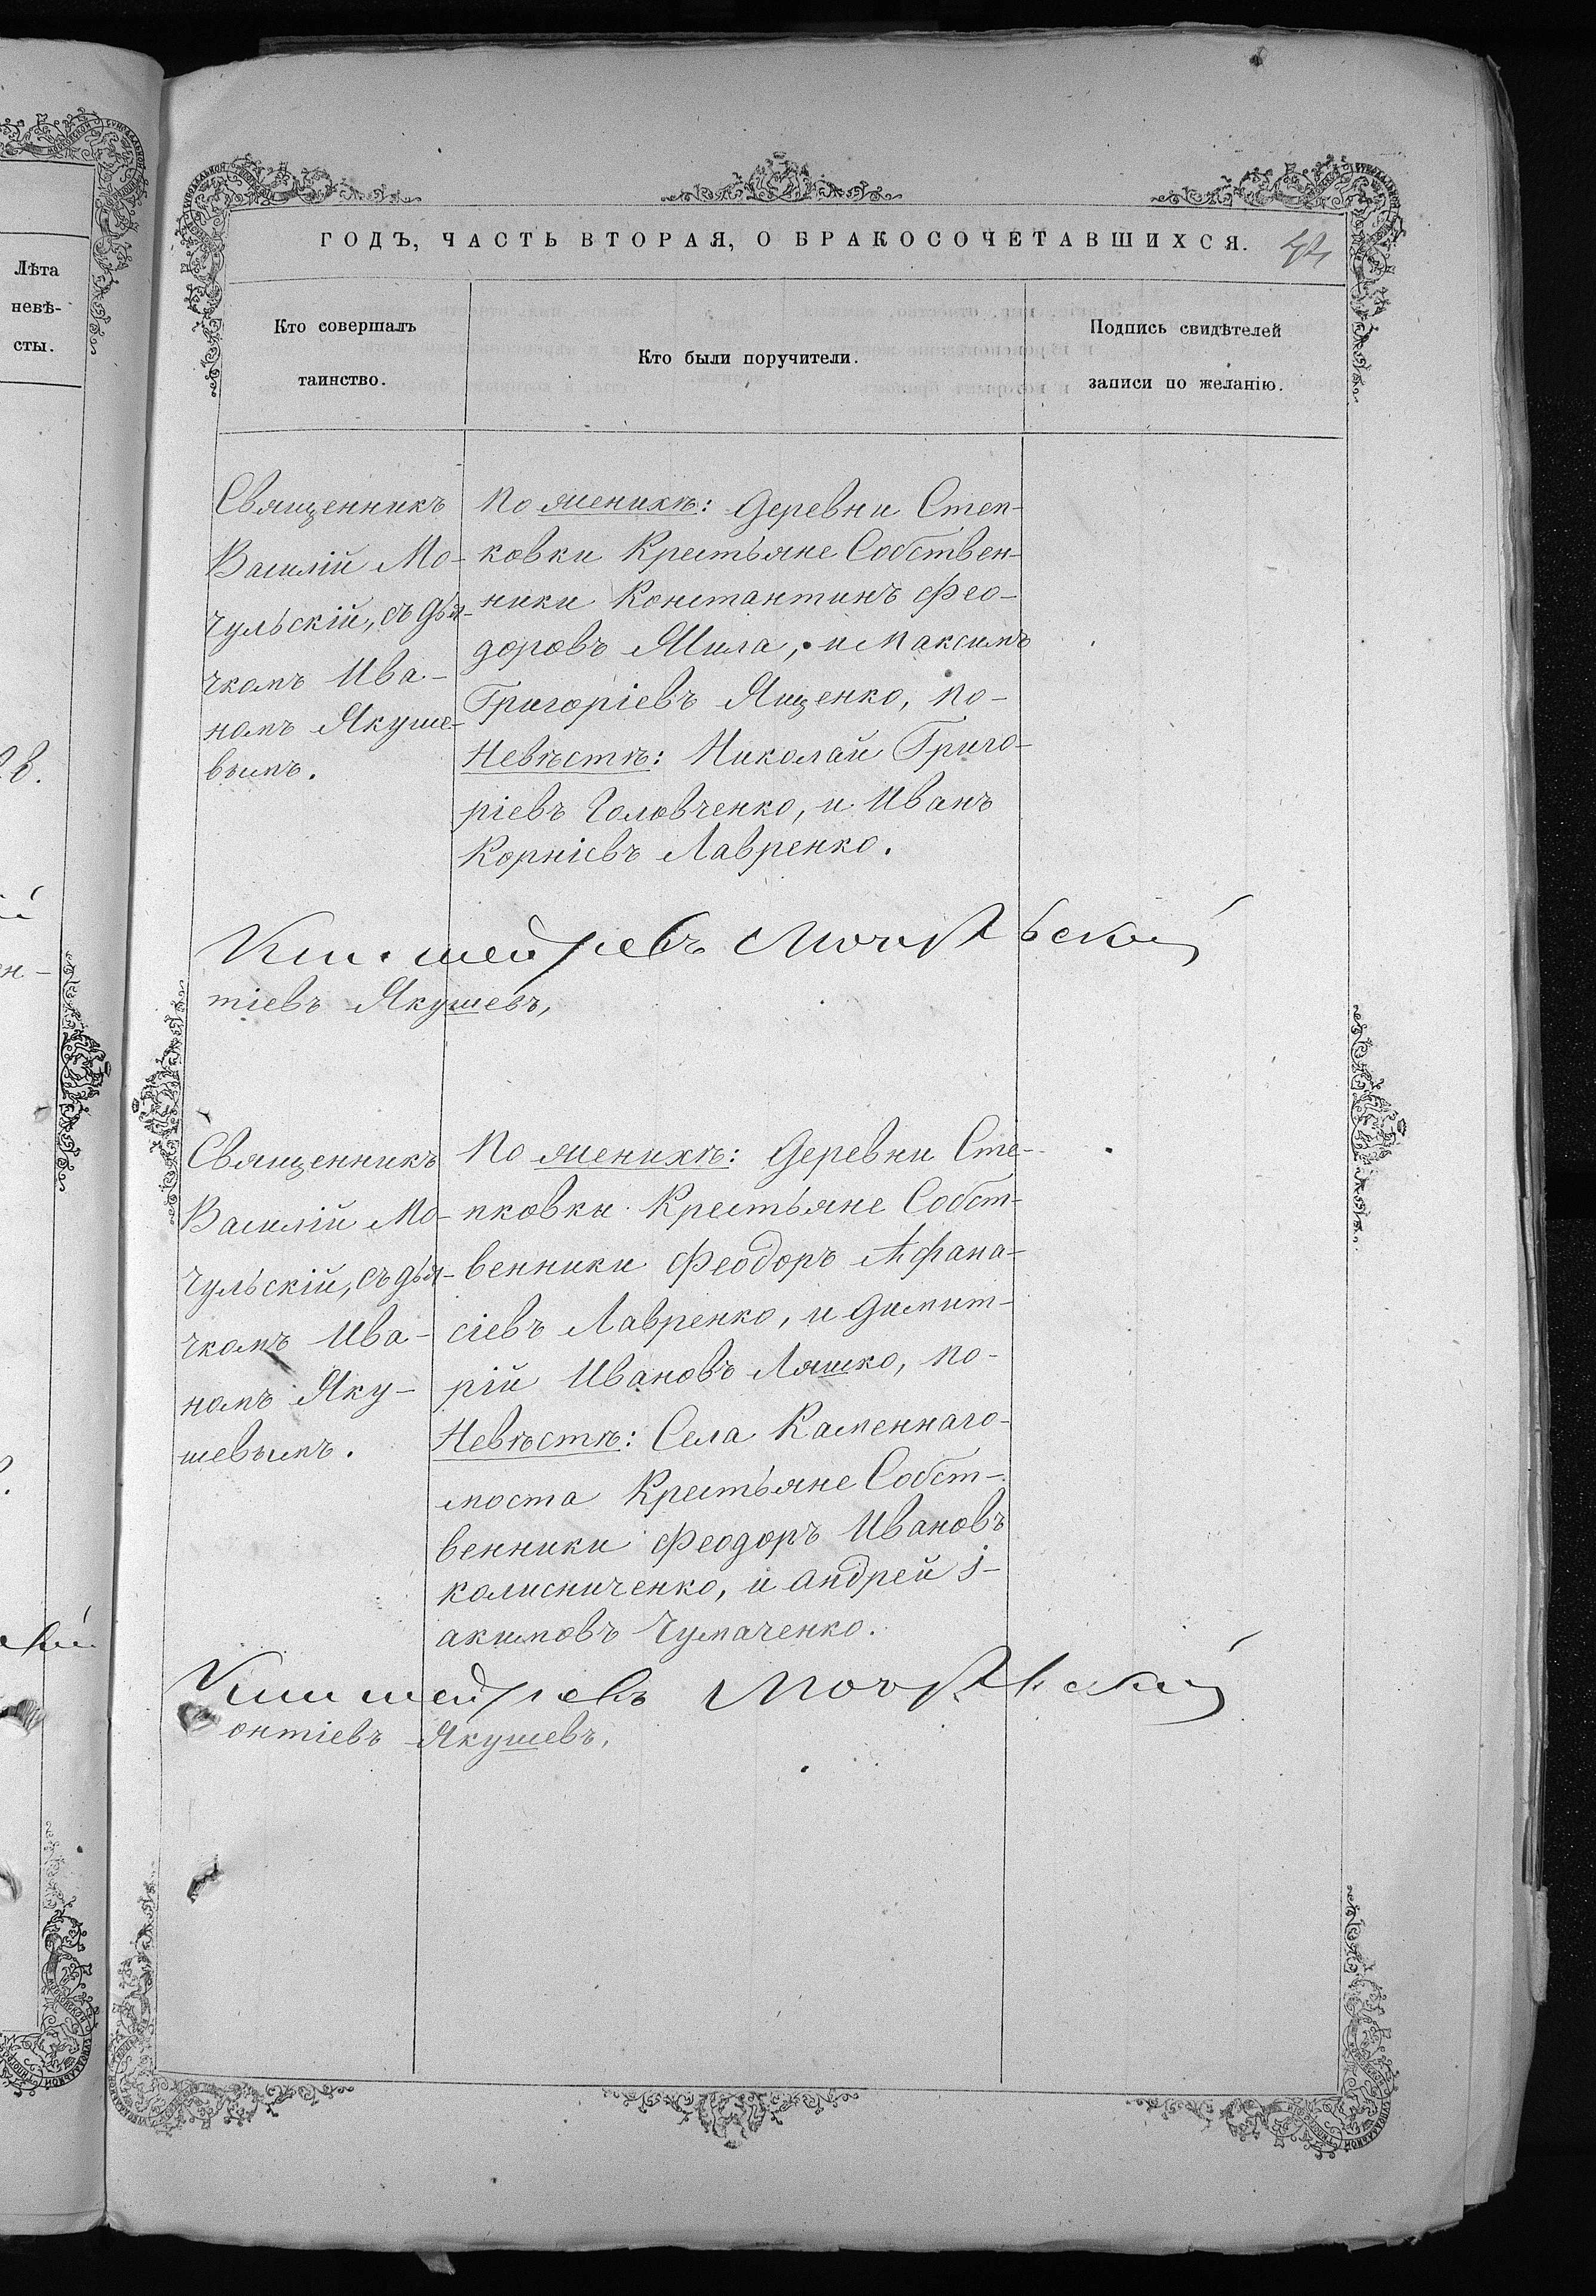 Лѣта
невѣ-
сты.
ГОДЪ, ЧАСТЬ ВТОРАЯ, О БРАКОСОЧЕТАВШИХСЯ.
Кто совершалъ
таинство.
Кто были поручители.
Подпись свидѣтелей
записи по желанію.
Священникъ
Василій Мо-
чульскій, съ дья-
чкомъ Ива-
номъ Якуше-
вымъ.
По женихѣ: Деревни Степ-
ковки Крестьяне Собствен-
ники Константинъ Фео-
доровъ Жила, и Максимъ
Григоріевъ Ященко, по-
Невѣстѣ: Николай Григо-
ріевъ Головченко, и Иванъ
Корніевъ Лавренко.
тіевъ Якушевъ,
Священникъ
Василій Мо-
чульскій, съ дья-
чкомъ Ива-
номъ Яку-
шевымъ.
По женихѣ: Деревни Сте-
пковки Крестьяне Собст-
венники Феодоръ Афана-
сіевъ Лавренко, и Димит-
рій Ивановъ Ляшко, по-
Невѣстѣ: Села Каменнаго-
моста Крестьяне Собст-
венники Феодоръ Ивановъ
Колисниченко, и Андрей І-
акимовъ Чумаченко.
онтіевъ Якушевъ,